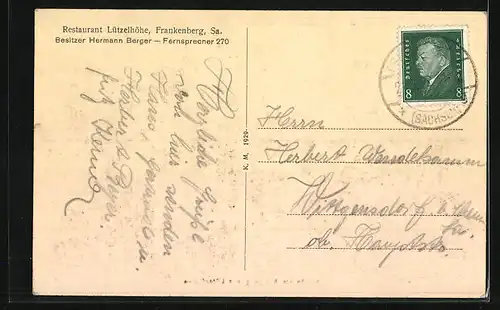 Restaurant Lützelhöhe, Frankenberg, Sa.
Besitzer Hermann Berger — Fernsprecher 270
Herzliche Grüße
von hier senden
Hans,
Herbert
Fritz
K. M. 1929
Deutsches Reich
8 8
(SACHSEN)
Herrn
Herbert Wandekamm
Wittgensdorf b. Chemn.
ob. Hauptstr.